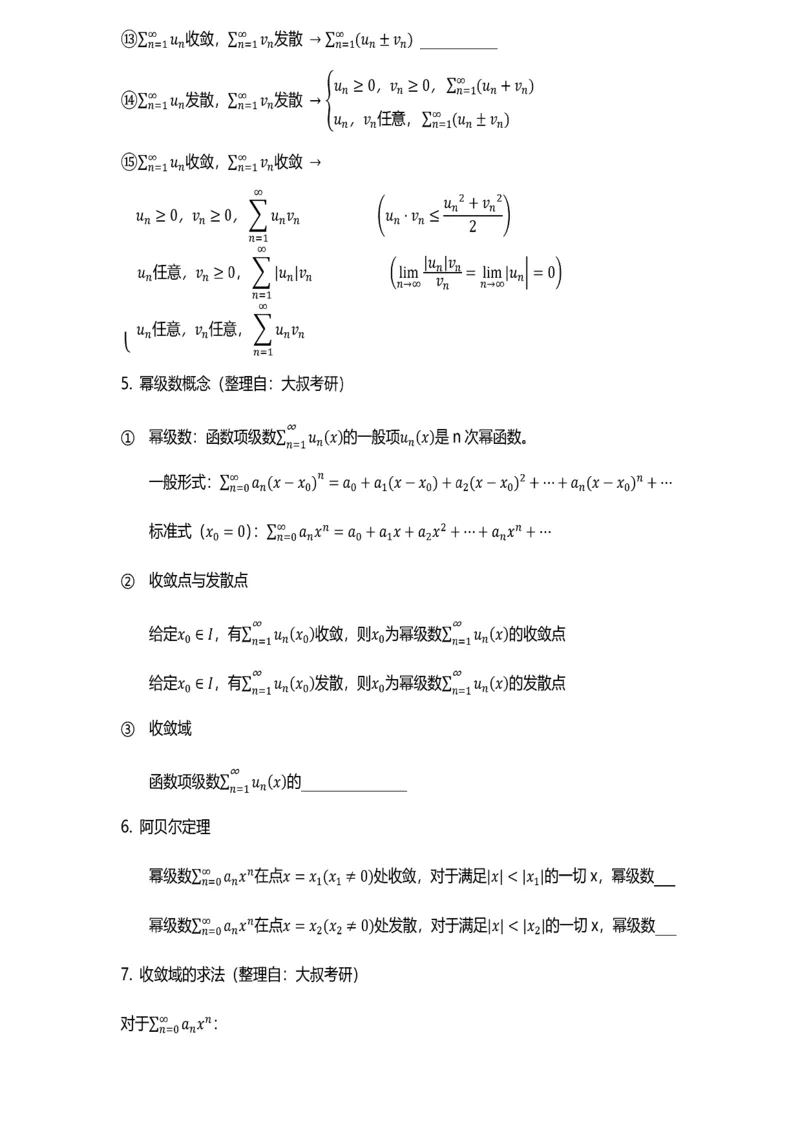 ⑬∑_{n=1}^{∞} u_n收敛，∑_{n=1}^{∞} v_n发散 → ∑_{n=1}^{∞}(u_n ± v_n) __________
⑭∑_{n=1}^{∞} u_n发散，∑_{n=1}^{∞} v_n发散 → { u_n ≥ 0，v_n ≥ 0，∑_{n=1}^{∞}(u_n + v_n)
u_n，v_n任意，∑_{n=1}^{∞}(u_n ± v_n)
⑮∑_{n=1}^{∞} u_n收敛，∑_{n=1}^{∞} v_n收敛 →
u_n ≥ 0，v_n ≥ 0，∑_{n=1}^{∞} u_n v_n (u_n · v_n ≤ (u_n² + v_n²)/2)
u_n任意，v_n ≥ 0，∑_{n=1}^{∞} |u_n|v_n (lim_{n→∞} |u_n|v_n / v_n = lim_{n→∞} |u_n| = 0)
u_n任意，v_n任意，∑_{n=1}^{∞} u_n v_n
5. 幂级数概念（整理自：大叔考研）
① 幂级数：函数项级数∑_{n=1}^{∞} u_n(x)的一般项u_n(x)是 n 次幂函数。
一般形式：∑_{n=0}^{∞} a_n(x − x_0)^n = a_0 + a_1(x − x_0) + a_2(x − x_0)² + ⋯ + a_n(x − x_0)^n + ⋯
标准式（x_0 = 0）：∑_{n=0}^{∞} a_n x^n = a_0 + a_1 x + a_2 x² + ⋯ + a_n x^n + ⋯
② 收敛点与发散点
给定x_0 ∈ I，有∑_{n=1}^{∞} u_n(x_0)收敛，则x_0为幂级数∑_{n=1}^{∞} u_n(x)的收敛点
给定x_0 ∈ I，有∑_{n=1}^{∞} u_n(x_0)发散，则x_0为幂级数∑_{n=1}^{∞} u_n(x)的发散点
③ 收敛域
函数项级数∑_{n=1}^{∞} u_n(x)的______________
6. 阿贝尔定理
幂级数∑_{n=0}^{∞} a_n x^n在点x = x_1(x_1 ≠ 0)处收敛，对于满足|x| < |x_1|的一切 x，幂级数___
幂级数∑_{n=0}^{∞} a_n x^n在点x = x_2(x_2 ≠ 0)处发散，对于满足|x| < |x_2|的一切 x，幂级数___
7. 收敛域的求法（整理自：大叔考研）
对于∑_{n=0}^{∞} a_n x^n：